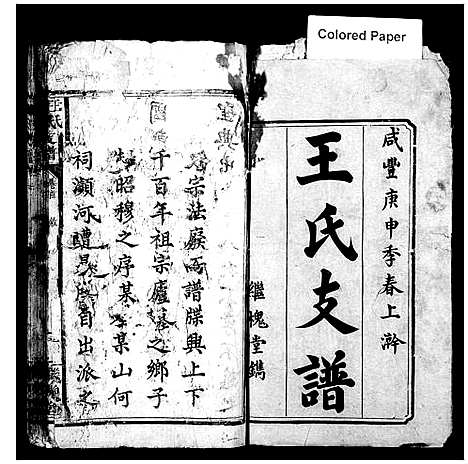 Colored Paper
咸豐庚申季春上澣
王氏支譜
繼槐堂鐫
宗法廢而譜牒興上下
千百年祖宗廬墓之鄉子
昭穆之序某之某山何
祠瀕河
自出派之
王氏支譜